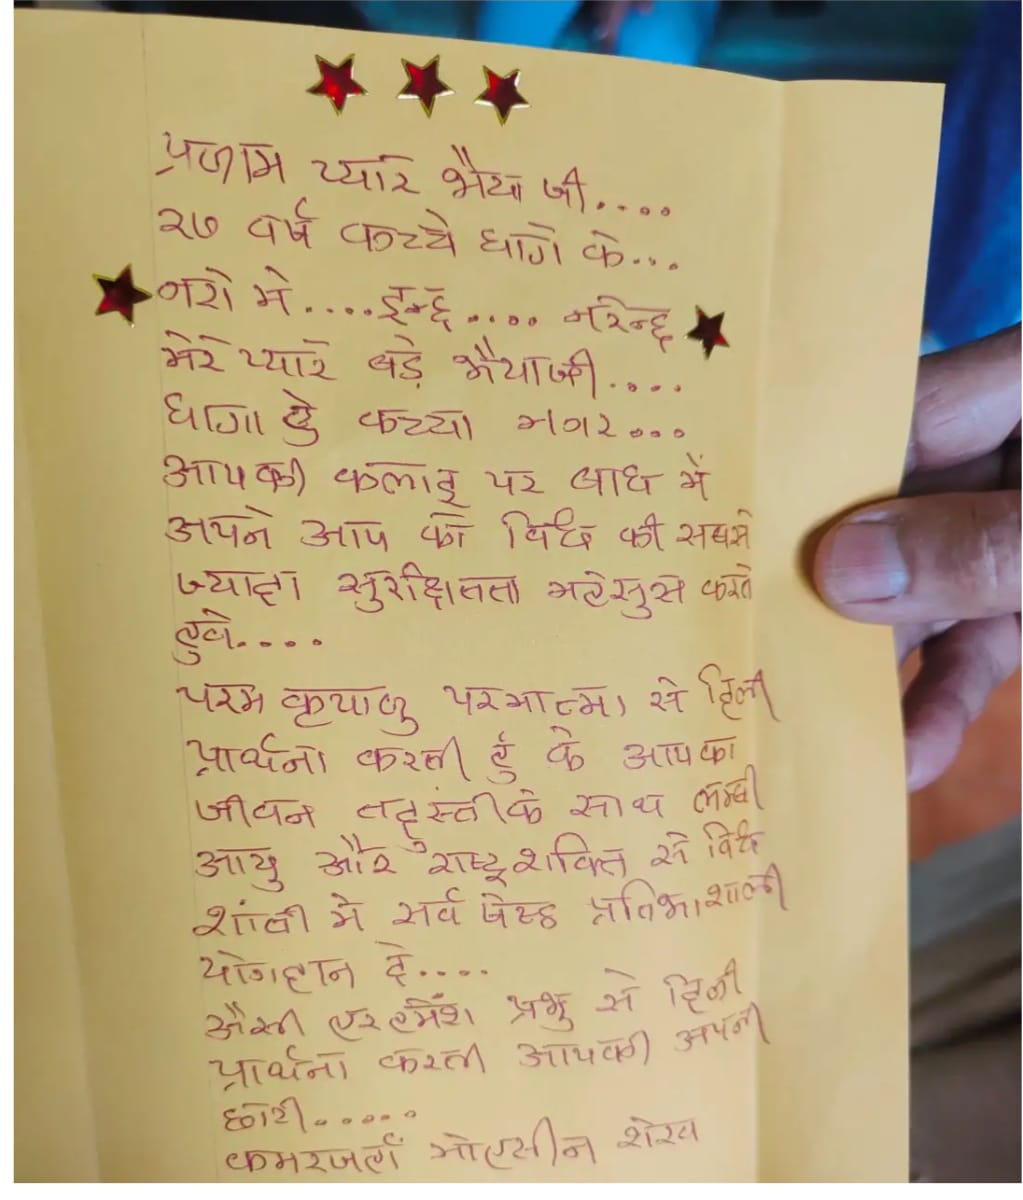 प्रणाम प्यारे भैया जी....
२७ वर्ष कच्चे धागे के...
नशे मे .... इन्द्र .... नरेन्द्र
मेरे प्यारे बड़े भैयाजी....
धागा हे कच्चा मगर...
आपकी कलाइ पर बांध में
अपने आप को विश्व की सबसे
ज्यादा सुरक्षितता महेसुस करते
हुवे....
परम कृपालु परमात्मा से दिली
प्रार्थना करती हुं के आपका
जीवन तंदुरुस्ती के साथ लम्बी
आयु और राष्ट्रशक्ति से विश्व
शांती मे सर्व श्रेष्ठ प्रतिभाशाली
योगदान दे....
अैसी हर हमेंशा प्रभु से दिली
प्रार्थना करती आपकी अपनी
छोटी.....
कमरजहाँ मोहसीन शेख